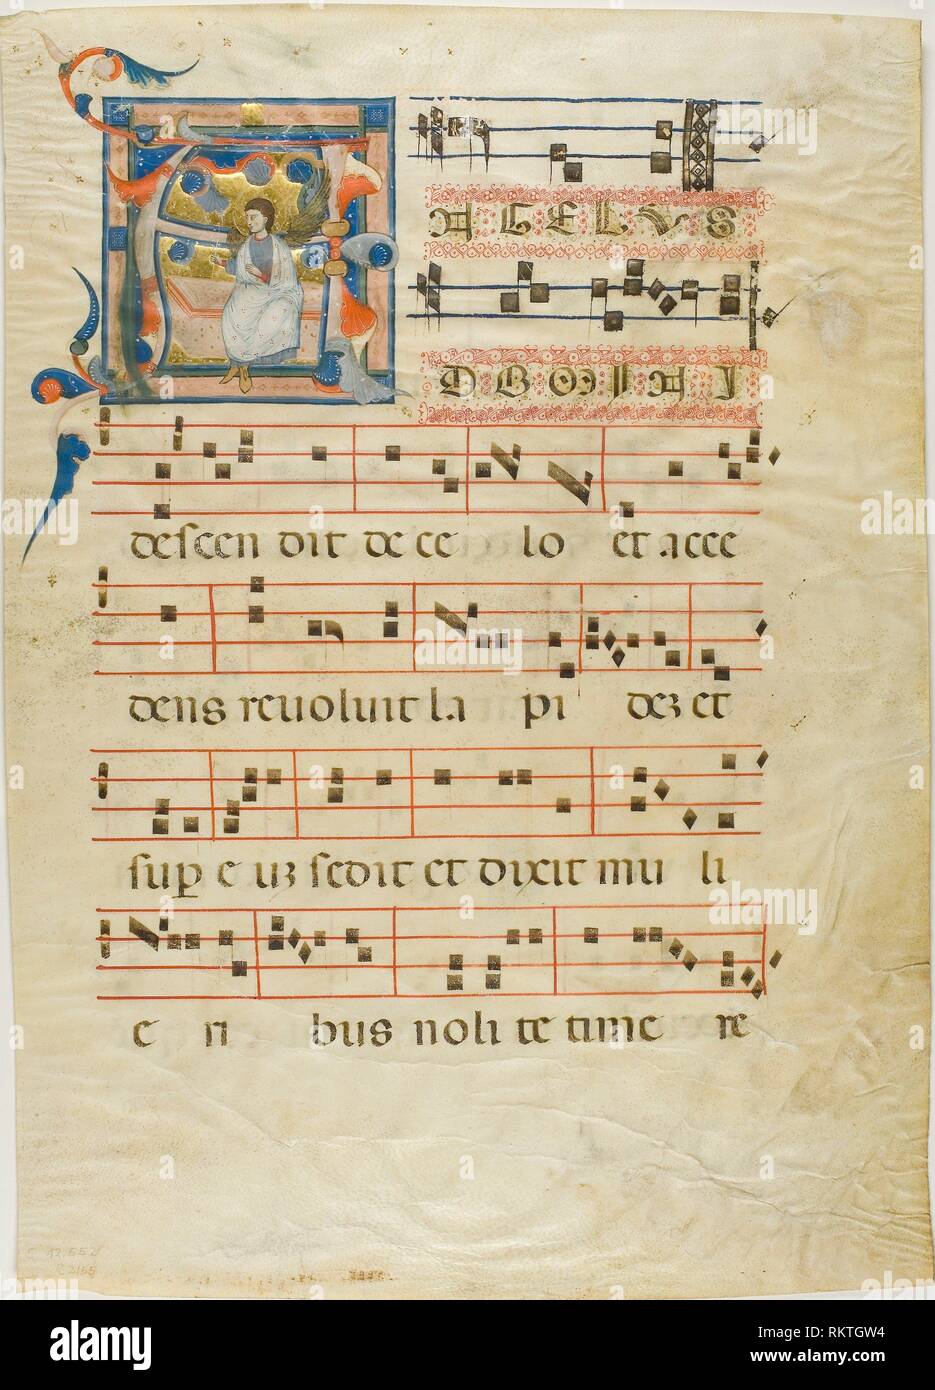 AGELUS
DOMINI
deſcen dit de ce lo et acce
dens revoluit la pi deʒ et
ſup e uʒ ſedit et dixit mu li
e ri bus noli te time re
C 12.552
alamy
Image ID: RKTGW4
www.alamy.com